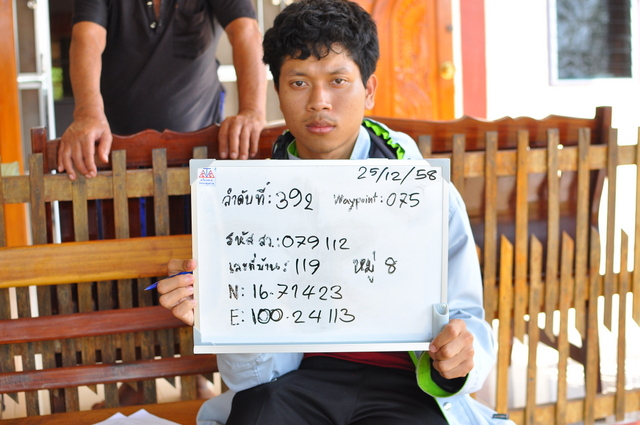 25/12/58
ลำดับที่: 392 Waypoint: 075
รหัส สว.: 079112
เลขที่บ้าน: 119 หมู่ 8
N: 16.71423
E: 100.24113